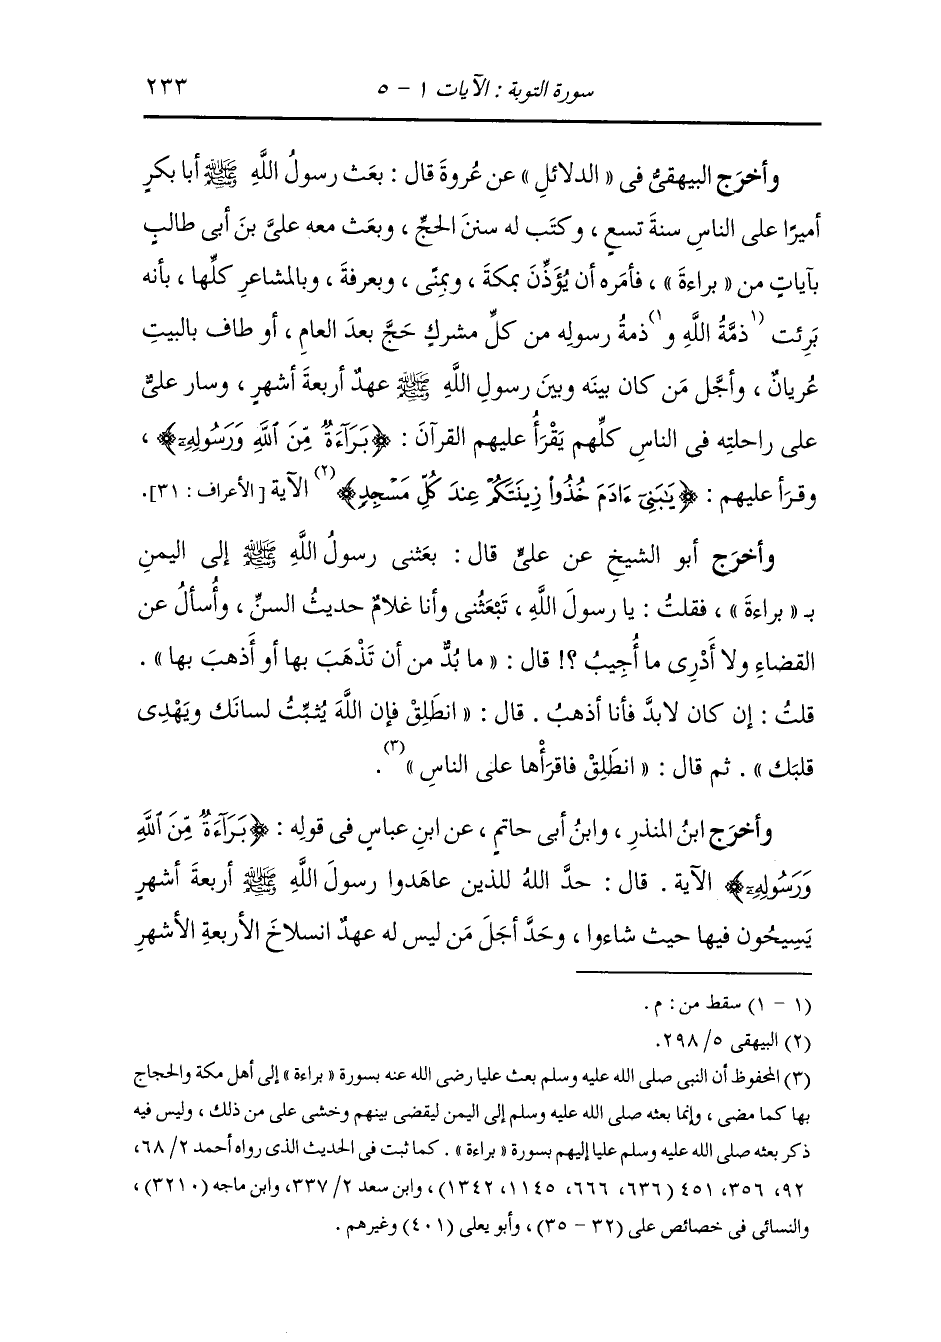 سورة التوبة : الآيات ١ - ٥ ٢٣٣
وأخرَج البيهقىُّ فى « الدلائلِ » عن عُروةَ قال : بعَث رسولُ اللَّهِ ﷺ أبا بكرٍ
أميرًا على الناسِ سنةَ تسعٍ ، وكتَب له سننَ الحجِّ ، وبعَث معه علىَّ بنَ أبى طالبٍ
بآياتٍ من « براءةَ » ، فأمَره أن يُؤَذِّنَ بمكةَ ، وبمِنًى ، وبعرفةَ ، وبالمشاعرِ كلِّها ، بأنه
بَرِئت (١ ذمَّةُ اللَّهِ و١) ذمةُ رسولِه من كلِّ مشركٍ حَجَّ بعدَ العامِ ، أو طاف بالبيتِ
عُريانٌ ، وأجَّل مَن كان بينَه وبينَ رسولِ اللَّهِ ﷺ عهدٌ أربعةَ أشهرٍ ، وسار علىٌّ
على راحلتِه فى الناسِ كلِّهم يَقْرَأُ عليهم القرآنَ : ﴿بَرَآءَةٌ مِّنَ ٱللَّهِ وَرَسُولِهِۦٓ﴾ ،
وقرَأ عليهم : ﴿يَٰبَنِىٓ ءَادَمَ خُذُواْ زِينَتَكُمْ عِندَ كُلِّ مَسْجِدٍ﴾(٢) الآية [ الأعراف : ٣١].
وأخرَج أبو الشيخِ عن علىٍّ قال : بعَثنى رسولُ اللَّهِ ﷺ إلى اليمنِ
بـ « براءةَ » ، فقلتُ : يا رسولَ اللَّهِ ، تَبْعَثُنى وأنا غلامٌ حديثُ السنِّ ، وأُسألُ عن
القضاءِ ولا أَدْرِى ما أُجِيبُ ؟! قال : « ما بُدٌّ من أن تَذْهَبَ بها أو أَذهبَ بها » .
قلتُ : إن كان لابدَّ فأنا أذهبُ . قال : « انطَلِقْ فإن اللَّهَ يُثبِّتُ لسانَك ويَهْدِى
قلبَك » . ثم قال : « انطَلِقْ فاقرَأْها على الناسِ »(٣) .
وأخرَج ابنُ المنذرِ ، وابنُ أبى حاتمٍ ، عن ابنِ عباسٍ فى قولِه : ﴿بَرَآءَةٌ مِّنَ ٱللَّهِ
وَرَسُولِهِۦٓ﴾ الآية . قال : حدَّ اللهُ للذين عاهَدوا رسولَ اللَّهِ ﷺ أربعةَ أشهرٍ
يَسِيحُون فيها حيث شاءوا ، وحَدَّ أجَلَ مَن ليس له عهدٌ انسلاخَ الأربعةِ الأشهرِ
(١ - ١) سقط من : م .
(٢) البيهقى ٥/ ٢٩٨.
(٣) المحفوظ أن النبى صلى الله عليه وسلم بعث عليا رضى الله عنه بسورة « براءة » إلى أهل مكة والحجاج
بها كما مضى ، وإنما بعثه صلى الله عليه وسلم إلى اليمن ليقضى بينهم وخشى على من ذلك ، وليس فيه
ذكر بعثه صلى الله عليه وسلم عليا إليهم بسورة « براءة » . كما ثبت فى الحديث الذى رواه أحمد ٢/ ٦٨،
٩٢، ٣٥٦، ٤٥١ (٦٣٦، ٦٦٦، ١١٤٥، ١٣٤٢) ، وابن سعد ٢/ ٣٣٧، وابن ماجه (٣٢١٠) ،
والنسائى فى خصائص على (٣٢ - ٣٥) ، وأبو يعلى (٤٠١) وغيرهم .